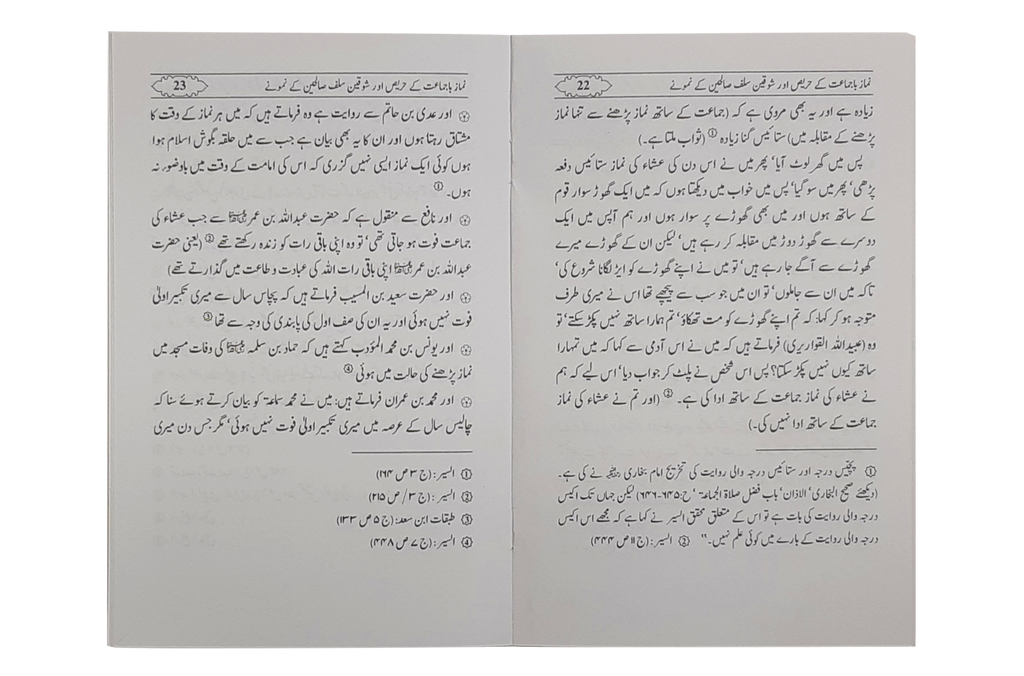 نماز باجماعت کے حریص اور شوقین سلف صالحین کے نمونے 22
زیادہ ہے اور یہ بھی مروی ہے کہ (جماعت کے ساتھ نماز پڑھنے سے تنہا نماز
پڑھنے کے مقابلہ میں) ستائیس گنا زیادہ ① (ثواب ملتا ہے۔)
پس میں گھر لوٹ آیا' پھر میں نے اس دن کی عشاء کی نماز ستائیس دفعہ
پڑھی' پھر میں سو گیا' پس میں خواب میں دیکھتا ہوں کہ میں ایک گھوڑ سوار قوم
کے ساتھ ہوں اور میں بھی گھوڑے پر سوار ہوں اور ہم آپس میں ایک
دوسرے سے گھوڑ دوڑ میں مقابلہ کر رہے ہیں' لیکن ان کے گھوڑے میرے
گھوڑے سے آگے جا رہے ہیں' تو میں نے اپنے گھوڑے کو ایڑ لگانا شروع کی'
تاکہ میں ان سے جا ملوں' تو ان میں جو سب سے پیچھے تھا اس نے میری طرف
متوجہ ہو کر کہا: کہ تم اپنے گھوڑے کو مت تھکاؤ' تم ہمارا ساتھ نہیں پکڑ سکتے' تو
وہ (عبیداللہ القواریری) فرماتے ہیں کہ میں نے اس آدمی سے کہا کہ میں تمہارا
ساتھ کیوں نہیں پکڑ سکتا؟ پس اس شخص نے پلٹ کر جواب دیا' اس لیے کہ ہم
نے عشاء کی نماز جماعت کے ساتھ ادا کی ہے۔ ② (اور تم نے عشاء کی نماز
جماعت کے ساتھ ادا نہیں کی۔)
① پچیس درجہ اور ستائیس درجہ والی روایت کی تخریج امام بخاری رحمہ اللہ نے کی ہے۔
(دیکھئے صحیح البخاری' الاذان' باب فضل صلاة الجماعة ' ح:۶۴۵-۶۴۶) لیکن جہاں تک اکیس
درجہ والی روایت کی بات ہے تو اس کے متعلق محقق السیر نے کہا ہے کہ مجھے اس اکیس
درجہ والی روایت کے بارے میں کوئی علم نہیں۔" ② السیر: (ج ۱۱ ص ۴۴۴)
نماز باجماعت کے حریص اور شوقین سلف صالحین کے نمونے 23
اور عدی بن حاتم سے روایت ہے وہ فرماتے ہیں کہ میں ہر نماز کے وقت کا
مشتاق رہتا ہوں اور ان کا یہ بھی بیان ہے جب سے میں حلقہ بگوش اسلام ہوا
ہوں کوئی ایک نماز ایسی نہیں گزری کہ اس کی امامت کے وقت میں باوضو نہ
ہوں۔ ①
اور نافع سے منقول ہے کہ حضرت عبداللہ بن عمر رضی اللہ عنہما سے جب عشاء کی
جماعت فوت ہو جاتی تھی' تو وہ اپنی باقی رات کو زندہ رکھتے تھے ② (یعنی حضرت
عبداللہ بن عمر رضی اللہ عنہما اپنی باقی رات اللہ کی عبادت و طاعت میں گذارتے تھے)
اور حضرت سعید بن المسیب فرماتے ہیں کہ پچاس سال سے میری تکبیر اولیٰ
فوت نہیں ہوئی اور یہ ان کی صف اول کی پابندی کی وجہ سے تھا ③
اور یونس بن محمد المؤدب کہتے ہیں کہ حماد بن سلمہ کی وفات مسجد میں
نماز پڑھنے کی حالت میں ہوئی ④
اور محمد بن عمران فرماتے ہیں: میں نے محمد سماعۃ کو بیان کرتے ہوئے سنا کہ
چالیس سال کے عرصہ میں میری تکبیر اولیٰ فوت نہیں ہوئی' مگر جس دن میری
① السیر: (ج ۳ ص ۱۶۴)
② السیر: (ج ۳/ ص ۲۱۵)
③ طبقات ابن سعد: (ج ۵ ص ۱۳۳)
④ السیر: (ج ۷ ص ۴۴۸)